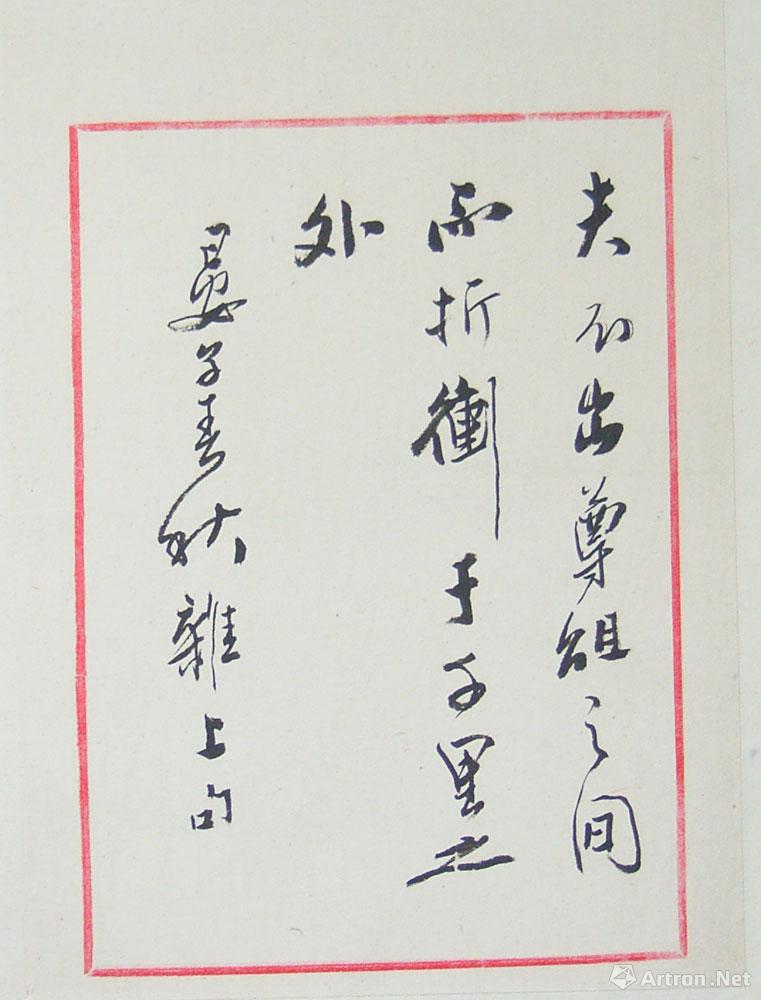 夫不出尊俎之间
而折衝于千里之
外
晏子春秋雜上句
Artron.Net